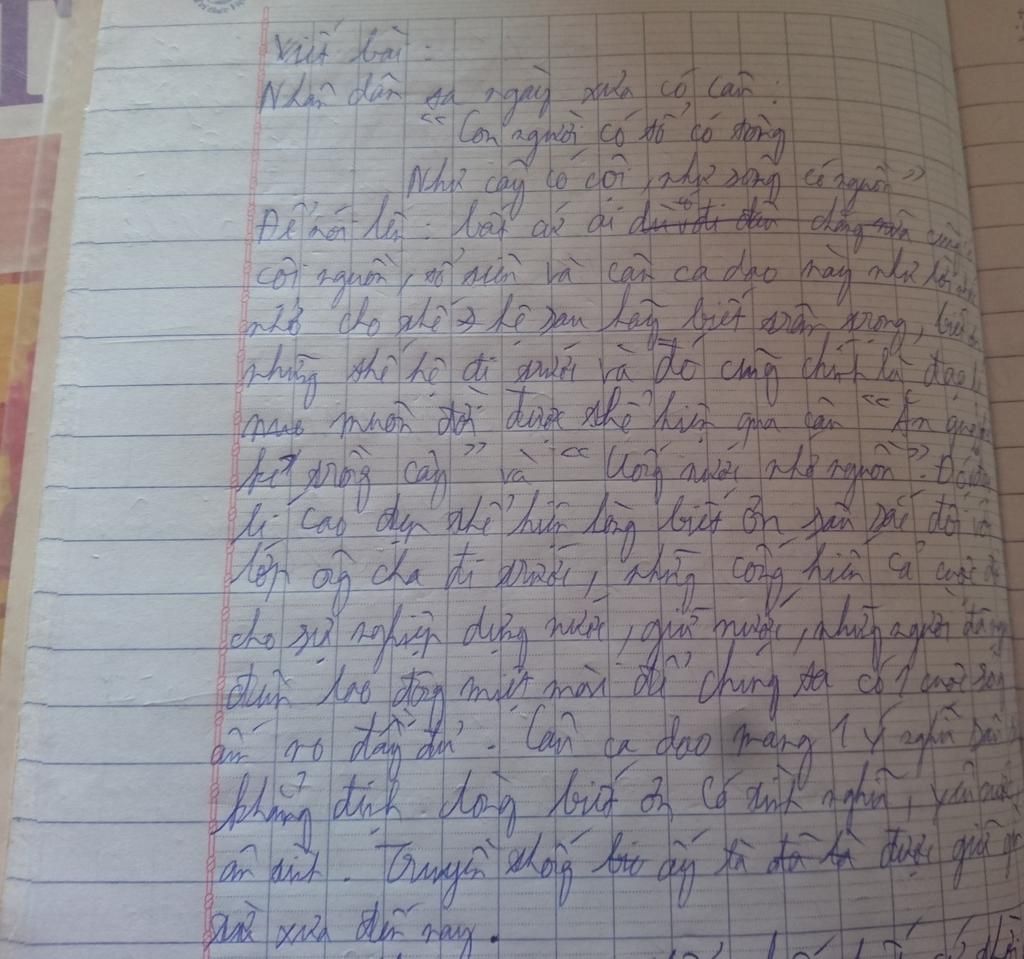 Viết bài :
Nhân dân ta ngày xưa có câu :
“ Con người có tổ có tông
Như cây có cội, như sông có nguồn ”
Để nói lên : bất cứ ai cũng
cội nguồn, tổ tiên và câu ca dao này như lời
nhở cho thế hệ sau hãy biết trân trọng, biết ơn
những thế hệ đi trước và đó cũng chính là đạo lí
muôn đời được thể hiện qua câu “ Ăn quả
kẻ trồng cây ” và “ Uống nước nhớ nguồn ”. Đó
lí cao đẹp thể hiện lòng biết ơn sâu sắc đối với
lớp ông cha đi trước, những cống hiến cả cuộc đời
cho sự nghiệp dựng nước, giữ nước, những người đang
lao động miệt mài để chúng ta có 1 cuộc sống
ấm no đầy đủ. Câu ca dao mang 1 ý nghĩa sâu
khẳng định lòng biết ơn có tình nghĩa,
ân tình. Truyền thống ấy đã được giữ gìn
từ xưa đến nay.